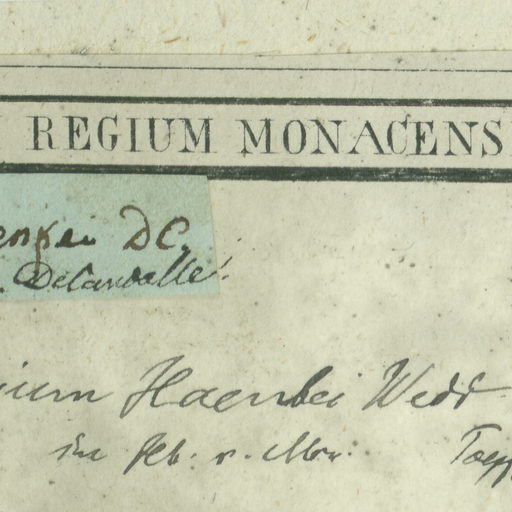 REGIUM MONACENS
enkei DC.
. DeCandolle!
ium Haenkei Wedd
im feb. v. Mrz.
Toepp